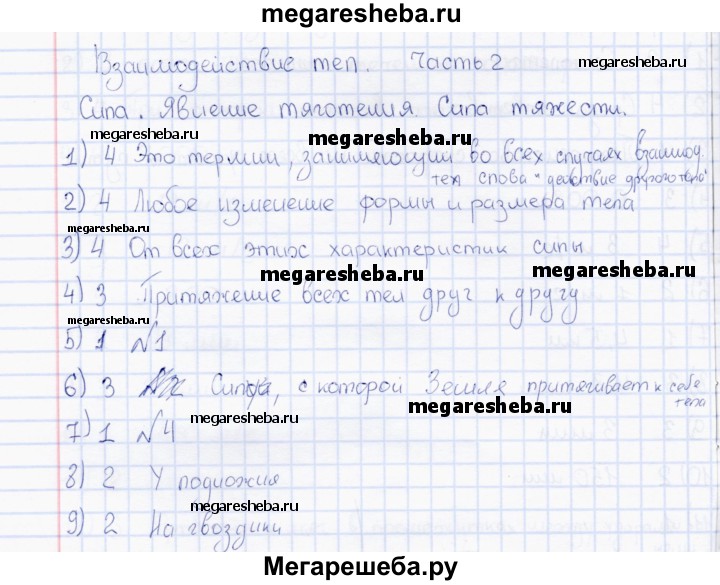 megaresheba.ru
Взаимодействие тел. Часть 2
megaresheba.ru
Сила. Явление тяготения. Сила тяжести.
megaresheba.ru
megaresheba.ru
1) 4 Это термин, заменяющий во всех случаях взаимод.
тел слова "действие другого тела"
2) 4 Любое изменение формы и размера тела
megaresheba.ru
3) 4 От всех этих характеристик силы
megaresheba.ru
megaresheba.ru
4) 3 Притяжение всех тел друг к другу
megaresheba.ru
5) 1 №1
6) 3 Сила, с которой Земля притягивает к себе
тела
megaresheba.ru
7) 1 №4
megaresheba.ru
8) 2 У подножия
megaresheba.ru
9) 2 На гвоздики
Мегарешеба.ру